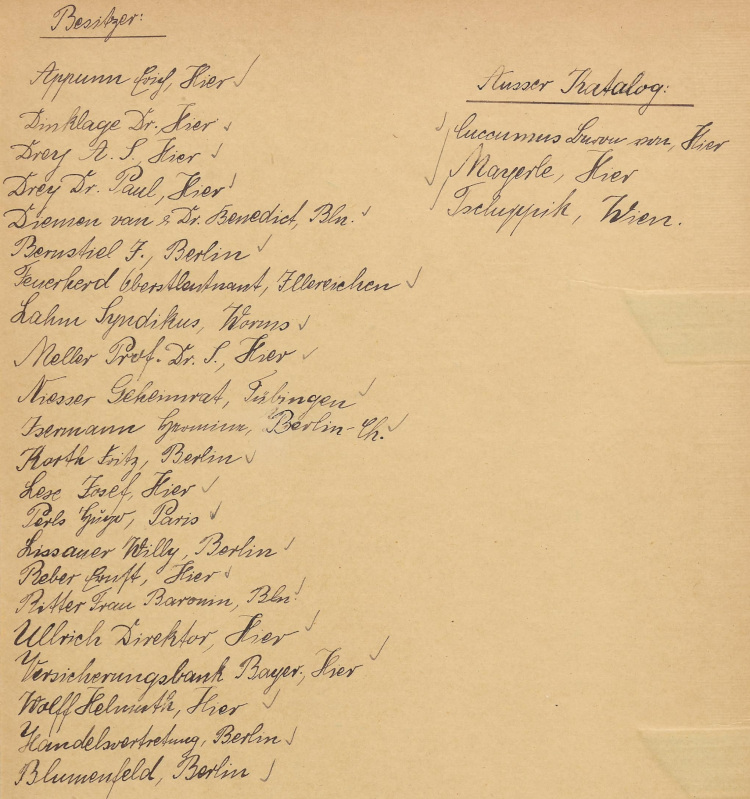 Besitzer:
Appunn Erich, Hier
Dinklage Dr. Hier
Drey A. S., Hier
Drey Dr. Paul, Hier
Diemen van & Dr. Benedict, Bln.
Bernstiel F., Berlin
Feuerherd Oberstleutnant, Illereichen
Lahm Syndikus, Worms
Meller Prof. Dr. S., Hier
Niesser Geheimrat, Tübingen
Isermann Hermine, Berlin-Ch.
Korth Fritz, Berlin
Lese Josef, Hier
Perls Hugo, Paris
Lissauer Willy, Berlin
Reber Ernst, Hier
Ritter Frau Baronin, Bln.
Ullrich Direktor, Hier
Versicherungsbank Bayer., Hier
Wolff Helmuth, Hier
Handelsvertretung, Berlin
Blumenfeld, Berlin
Ausser Katalog:
Cuccumus Baron von, Hier
Mayerle, Hier
Tschuppik, Wien.